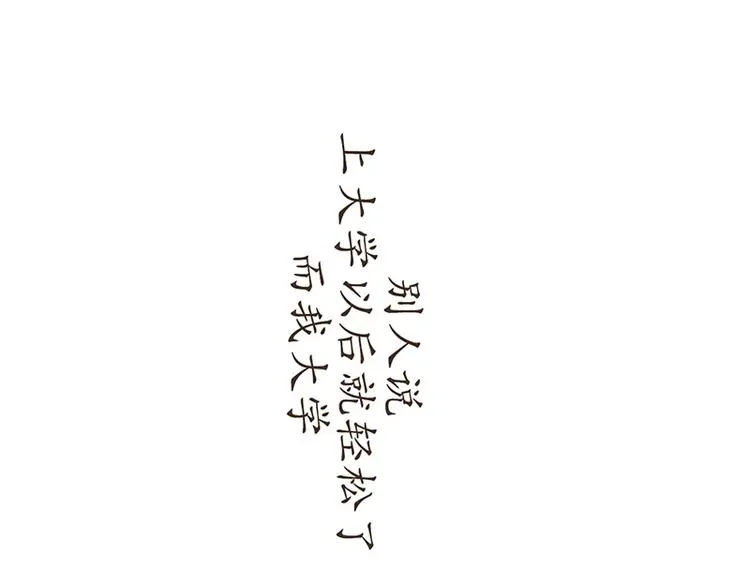 别人说
上大学以后就轻松了
而我大学